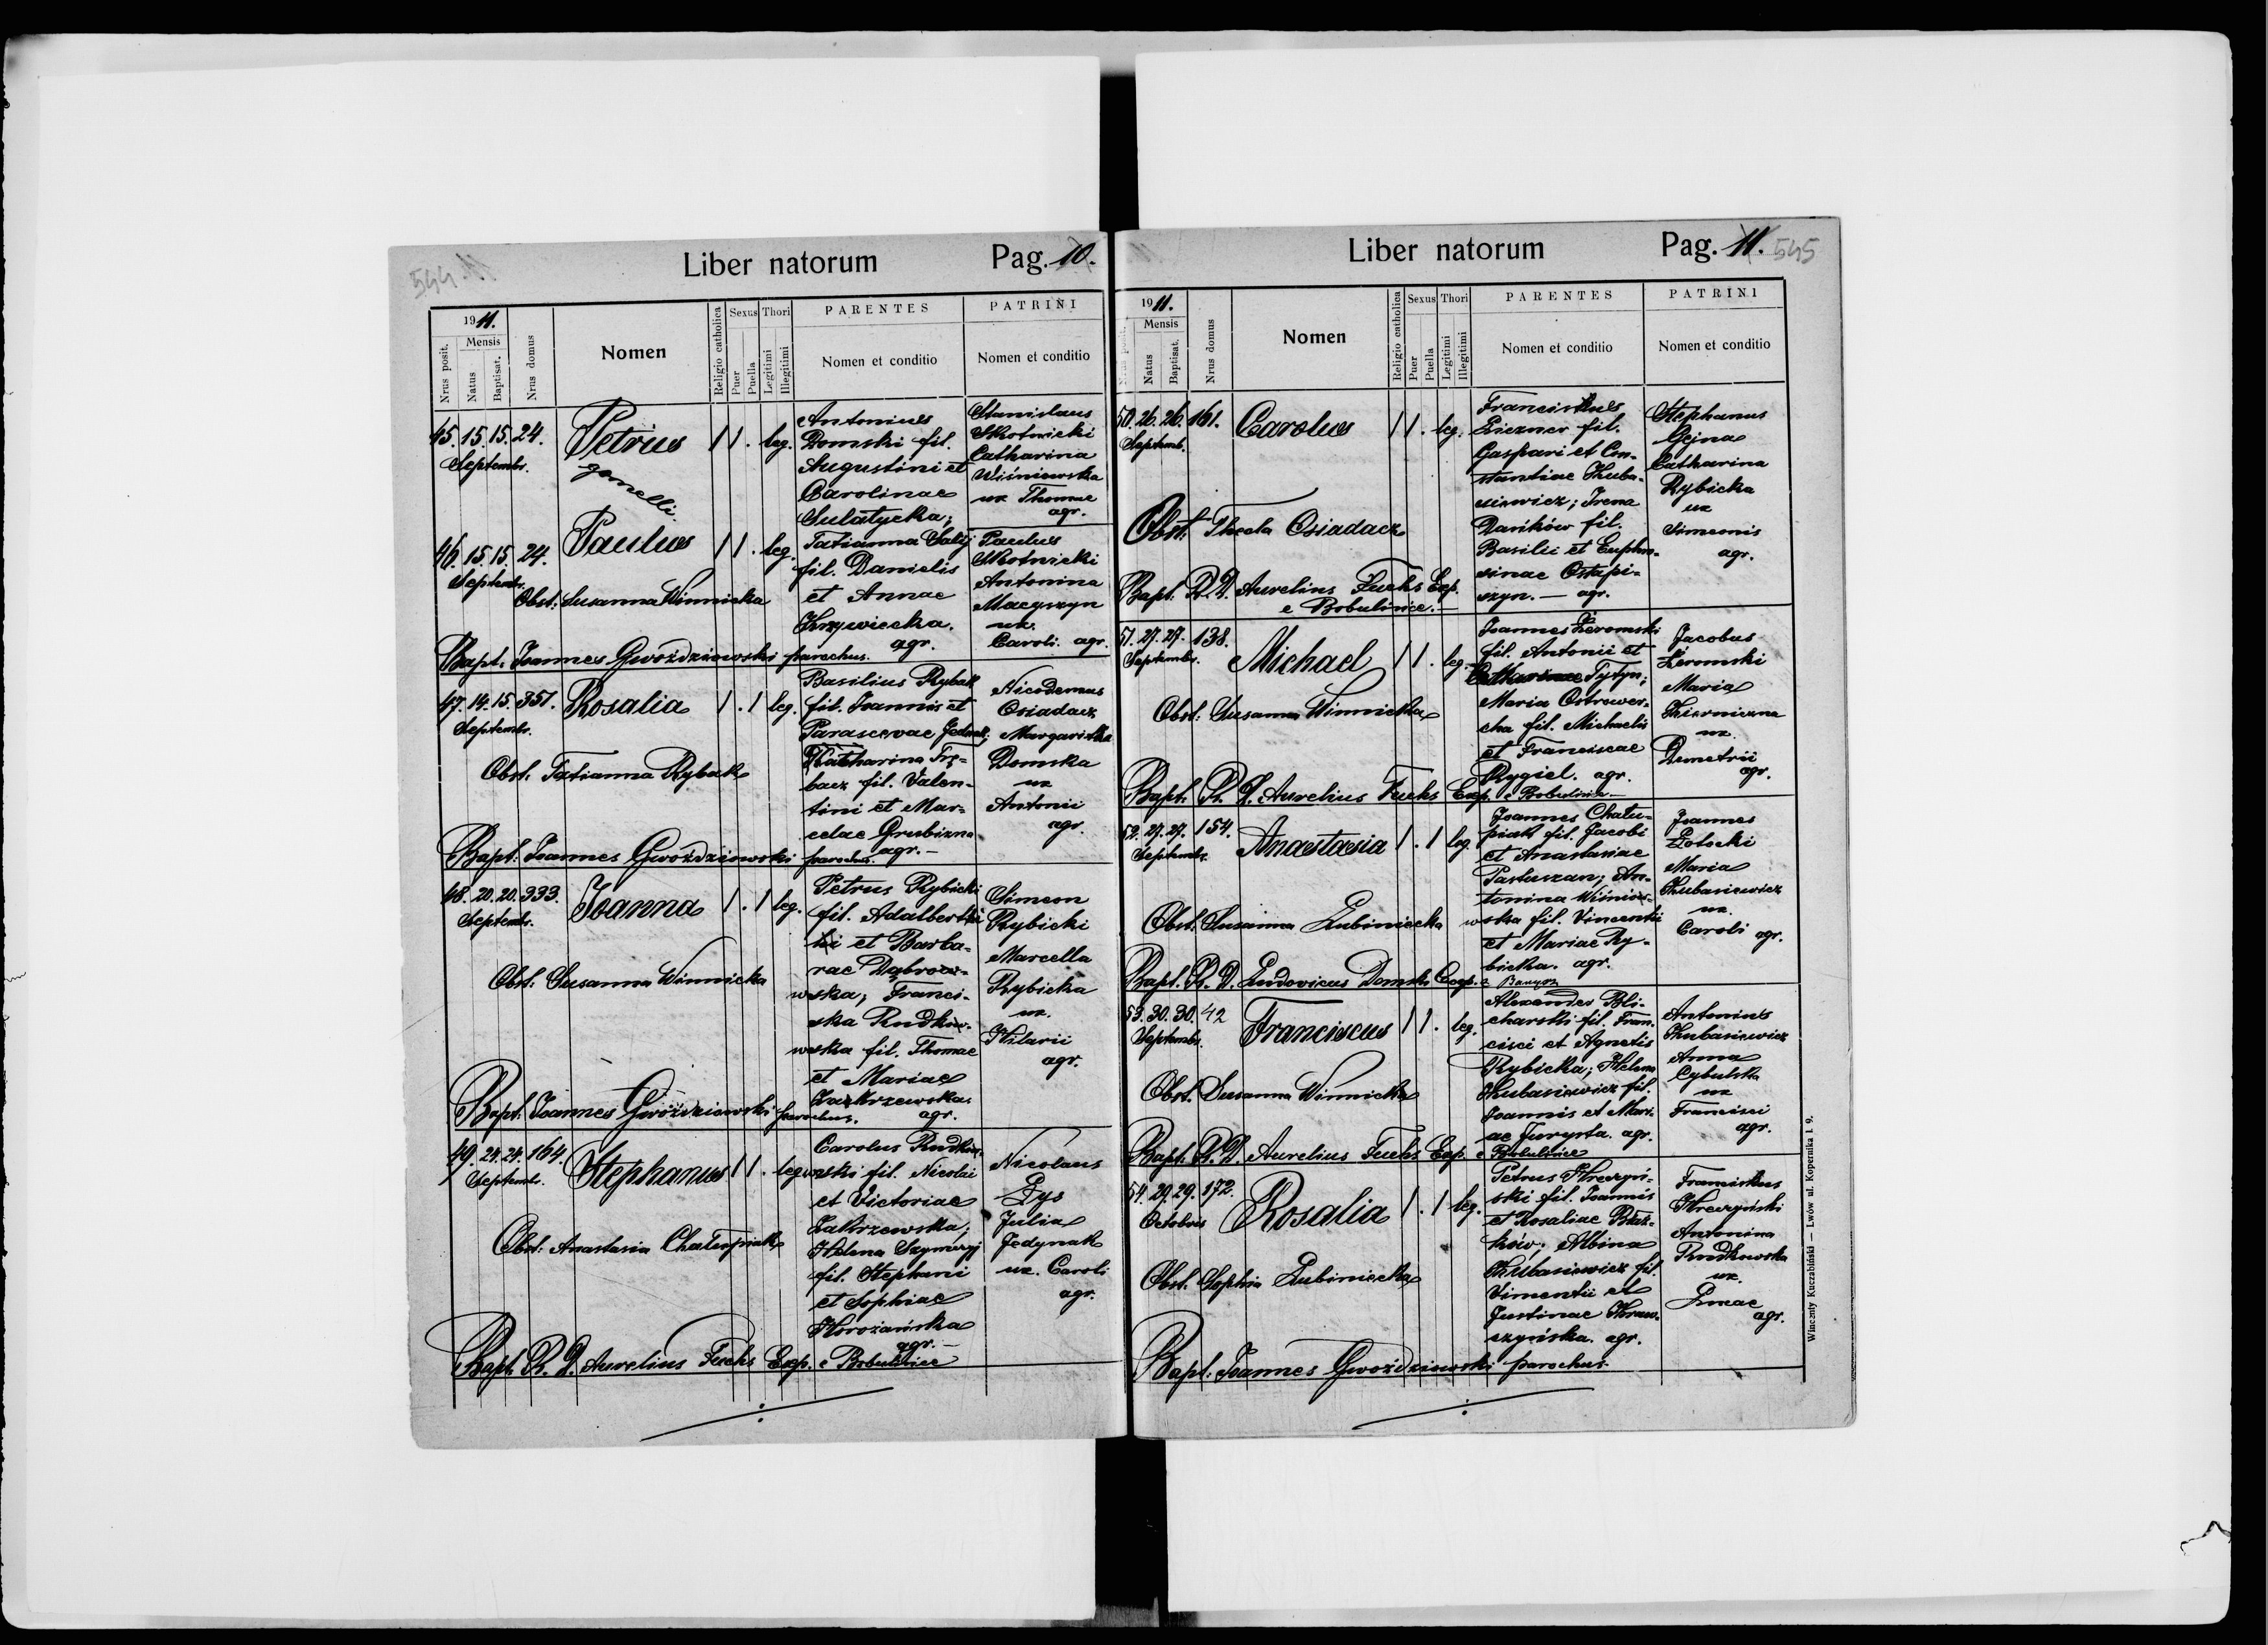 544.
Liber natorum Pag. 10.
1911.
Mensis
Nrus posit.
Natus
Baptisat.
Nrus domus
Nomen
Religio catholica
Sexus
Puer
Puella
Thori
Legitimi
Illegitimi
PARENTES
Nomen et conditio
PATRINI
Nomen et conditio
45. 15. 15. 24.
Septembr.
Petrus
gemelli
1 1 . leg.
Antonius
Domski fil.
Augustini et
Carolinae
Sulatycka;
Stanislaus
Skotnicki
Catharina
Wiśniewska
ux Thomae
agr.
46. 15. 15. 24.
Septembr.
Paulus
1 1 . leg.
Obst: Susanna Winnicka
Tatianna Salij
fil. Danielis
et Annae
Krzywiecka.
agr.
Paulus
Skotnicki
Antonina
Macyszyn
ux.
Caroli. agr.
Bapt: Joannes Gwoździowski parochus.
47. 14. 15. 351.
Septembr.
Rosalia
1 . 1 leg.
Obst. Tatianna Rybak
Basilius Rybak
fil. Joannis et
Parascevae
Katharina Trę-
bacz fil. Valen-
tini et Mar-
celae Grubizna
agr. —
Nicodemus
Osiadacz
Margaritha
Domska
ux
Antonii
agr.
Bapt: Joannes Gwoździowski parochus.
48. 20. 20. 333.
Septembr.
Joanna
1 . 1 leg.
Obst: Susanna Winnicka
Petrus Rybicki
fil. Adalberti
et Barba-
rae Dąbrow-
wska; Franci-
ska Rudkow-
wska fil. Thomae
et Mariae
Zakrzewska.
agr.
Simeon
Rybicki
Marcella
Rybicka
ux.
Hilarii
agr.
Bapt. Joannes Gwoździowski parochus.
49. 24. 24. 164.
Septembr.
Stephanus
1 1 . leg.
Obst: Anastasia Chałupniak
Carolus Rudkow-
wski fil. Nicolai
et Victoriae
Zakrzewska;
Helena
fil. Stephani
et Sophiae
Horożańska
agr. —
Nicolaus
Dys
Julia
Jedynak
ux. Caroli
agr.
Bapt. R. D. Aurelius Fuchs Exp. e Bobulińce
Liber natorum Pag. 11. 545
1911.
Mensis
Natus
Baptisat.
Nrus domus
Nomen
Religio catholica
Sexus
Puer
Puella
Thori
Legitimi
Illegitimi
PARENTES
Nomen et conditio
PATRINI
Nomen et conditio
50. 26. 26. 161.
Septemb.
Carolus
1 1 . leg.
Obst. Thecla Osiadacz
Franciskus
fil.
Gaspari et Con-
stantiae Kuba-
siewicz; Irena
Dańków fil.
Basilii et Euphro-
sinae Ostapi-
szyn. — agr.
Stephanus
Gejna
Catharina
Rybicka
ux
Simeonis
agr.
Bapt. R. D. Aurelius Fuchs Exp.
e Bobulińce. —
51. 27. 27. 138.
Septembr.
Michael
1 1 . leg.
Obst: Susanna Winnicka
Joannes Żeromski
fil. Antonii et
Catharinae Tytyn;
Maria Ostrower-
cha fil. Michaelis
et Franciscae
Rygiel. agr.
Jacobus
Żeromski
Maria
Kierniczna
ux.
Demetrii
agr.
Bapt. R. D. Aurelius Fuchs Exp. e Bobulińce —
52. 27. 27. 154.
Septembr.
Anastasia
1 . 1 leg.
Obst. Susanna Lubiniecka
Joannes Chału-
piak fil. Jacobi
et Anastasiae
Pastuszan; An-
tonina Wiśnie-
wska fil. Vincentii
et Mariae Ry-
bicka. agr.
Joannes
Potocki
Maria
Kubasiewicz
ux.
Caroli agr.
Bapt. R. D. Ludovicus Domski Coop.
53. 30. 30. 42
Septembr.
Franciscus
1 1 . leg.
Obst. Susanna Winnicka
Alexander Bli-
charski fil. Fran-
cisci et Agnetis
Rybicka; Helena
Kubasiewicz fil.
Joannis et Mari-
ae Jurysta. agr.
Antonius
Kubasiewicz
Anna
Cybulska
ux
Francisci
agr.
Bapt. R. D. Aurelius Fuchs Exp. e Bobulińce
54. 29. 29. 172.
Octobris
Rosalia
1 . 1 leg.
Obst. Sophia Lubiniecka
Petrus Kreczyń-
ski fil. Joannis
et Rosaliae Błaż-
ków; Albina
Kubasiewicz fil.
Vincentii et
Justinae Kraw-
czyńska. agr.
Franciskus
Kreczyński
Antonina
Rudkowska
ux.
Lucae
agr.
Bapt: Joannes Gwoździowski parochus.
Winczenty Kuczabiński — Lwów ul. Kopernika l. 9.